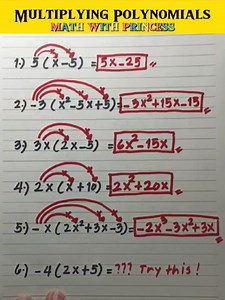 MULTIPLYING POLYNOMIALS
MATH WITH PRINCESS
1.) 5(x-5) = 5x-25
2.) -3(x²-5x+5) = -3x²+15x-15
3.) 3x(2x-5) = 6x²-15x
4.) 2x(x+10) = 2x²+20x
5.) -x(2x²+3x-3) = -2x³-3x²+3x
6.) -4(2x+5) = ??? Try this!